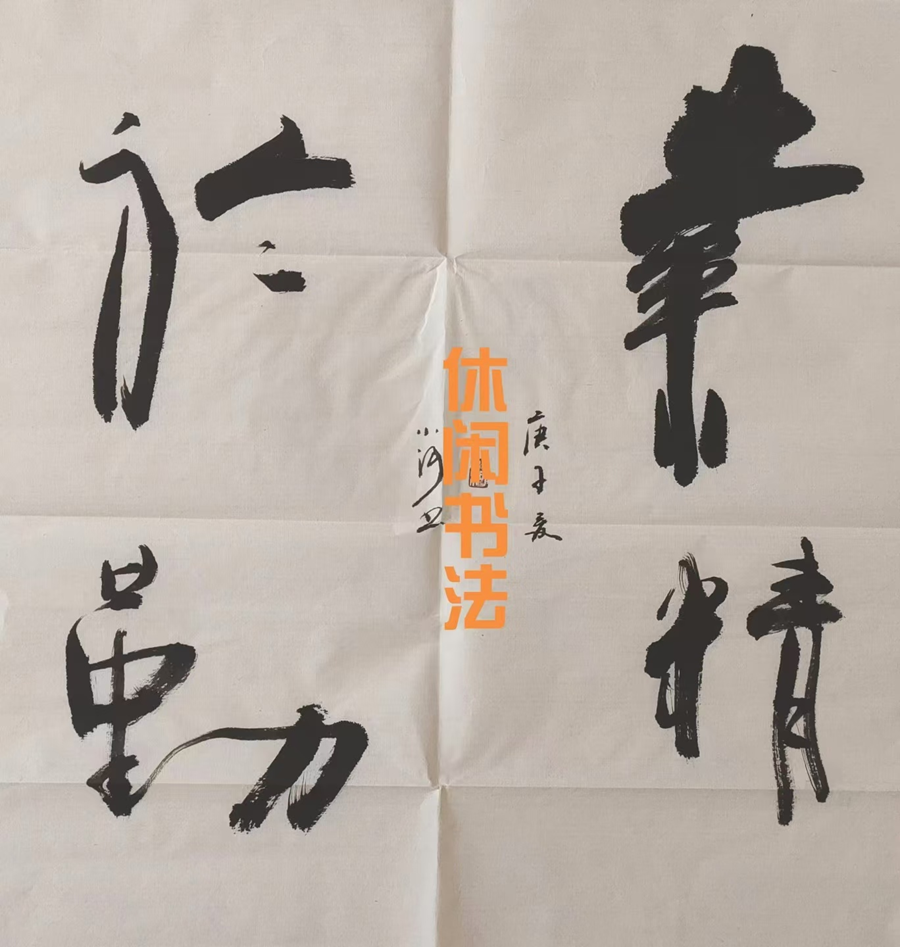 業精
於勤
庚子夏
小河卫
休闲书法